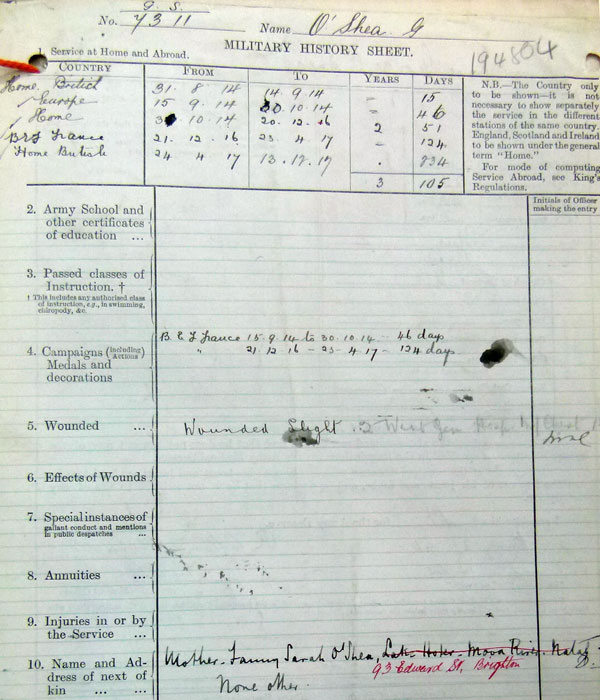 G. S.
No. 7311 Name O'Shea G
MILITARY HISTORY SHEET.
194804
1. Service at Home and Abroad.
COUNTRY FROM TO YEARS DAYS
Home British 31. 8. 14 14. 9. 14 - 15
Europe 15 9. 14 30. 10. 14 - 46
Home 31 10. 14 20. 12. 16 2 51
BEF France 21. 12 16 23. 4. 17 - 124
Home British 24 4 17 13. 17 234
3 105
N.B.—The Country only
to be shown—it is not
necessary to show separately
the service in the different
stations of the same country.
England, Scotland and Ireland
to be shown under the general
term "Home."
For mode of computing
Service Abroad, see King's
Regulations.
Initials of Officer
making the entry
2. Army School and
other certificates
of education ...
3. Passed classes of
Instruction. †
† This includes any authorised class
of instruction, e.g., in swimming,
chiropody, &c.
4. Campaigns (including Actions)
Medals and
decorations
B E F France 15. 9. 14 to 30. 10. 14 - 46 days
" 21. 12. 16 - 23 - 4. 17 - 124 days
5. Wounded ... Wounded Slight
6. Effects of Wounds
7. Special instances of
gallant conduct and mentions
in public despatches ...
8. Annuities ...
9. Injuries in or by
the Service ...
10. Name and Ad-
dress of next of
kin ... ...
Mother - Fanny Sarah O'Shea, Mooi River - Natal
93 Edward St, Brighton
None other